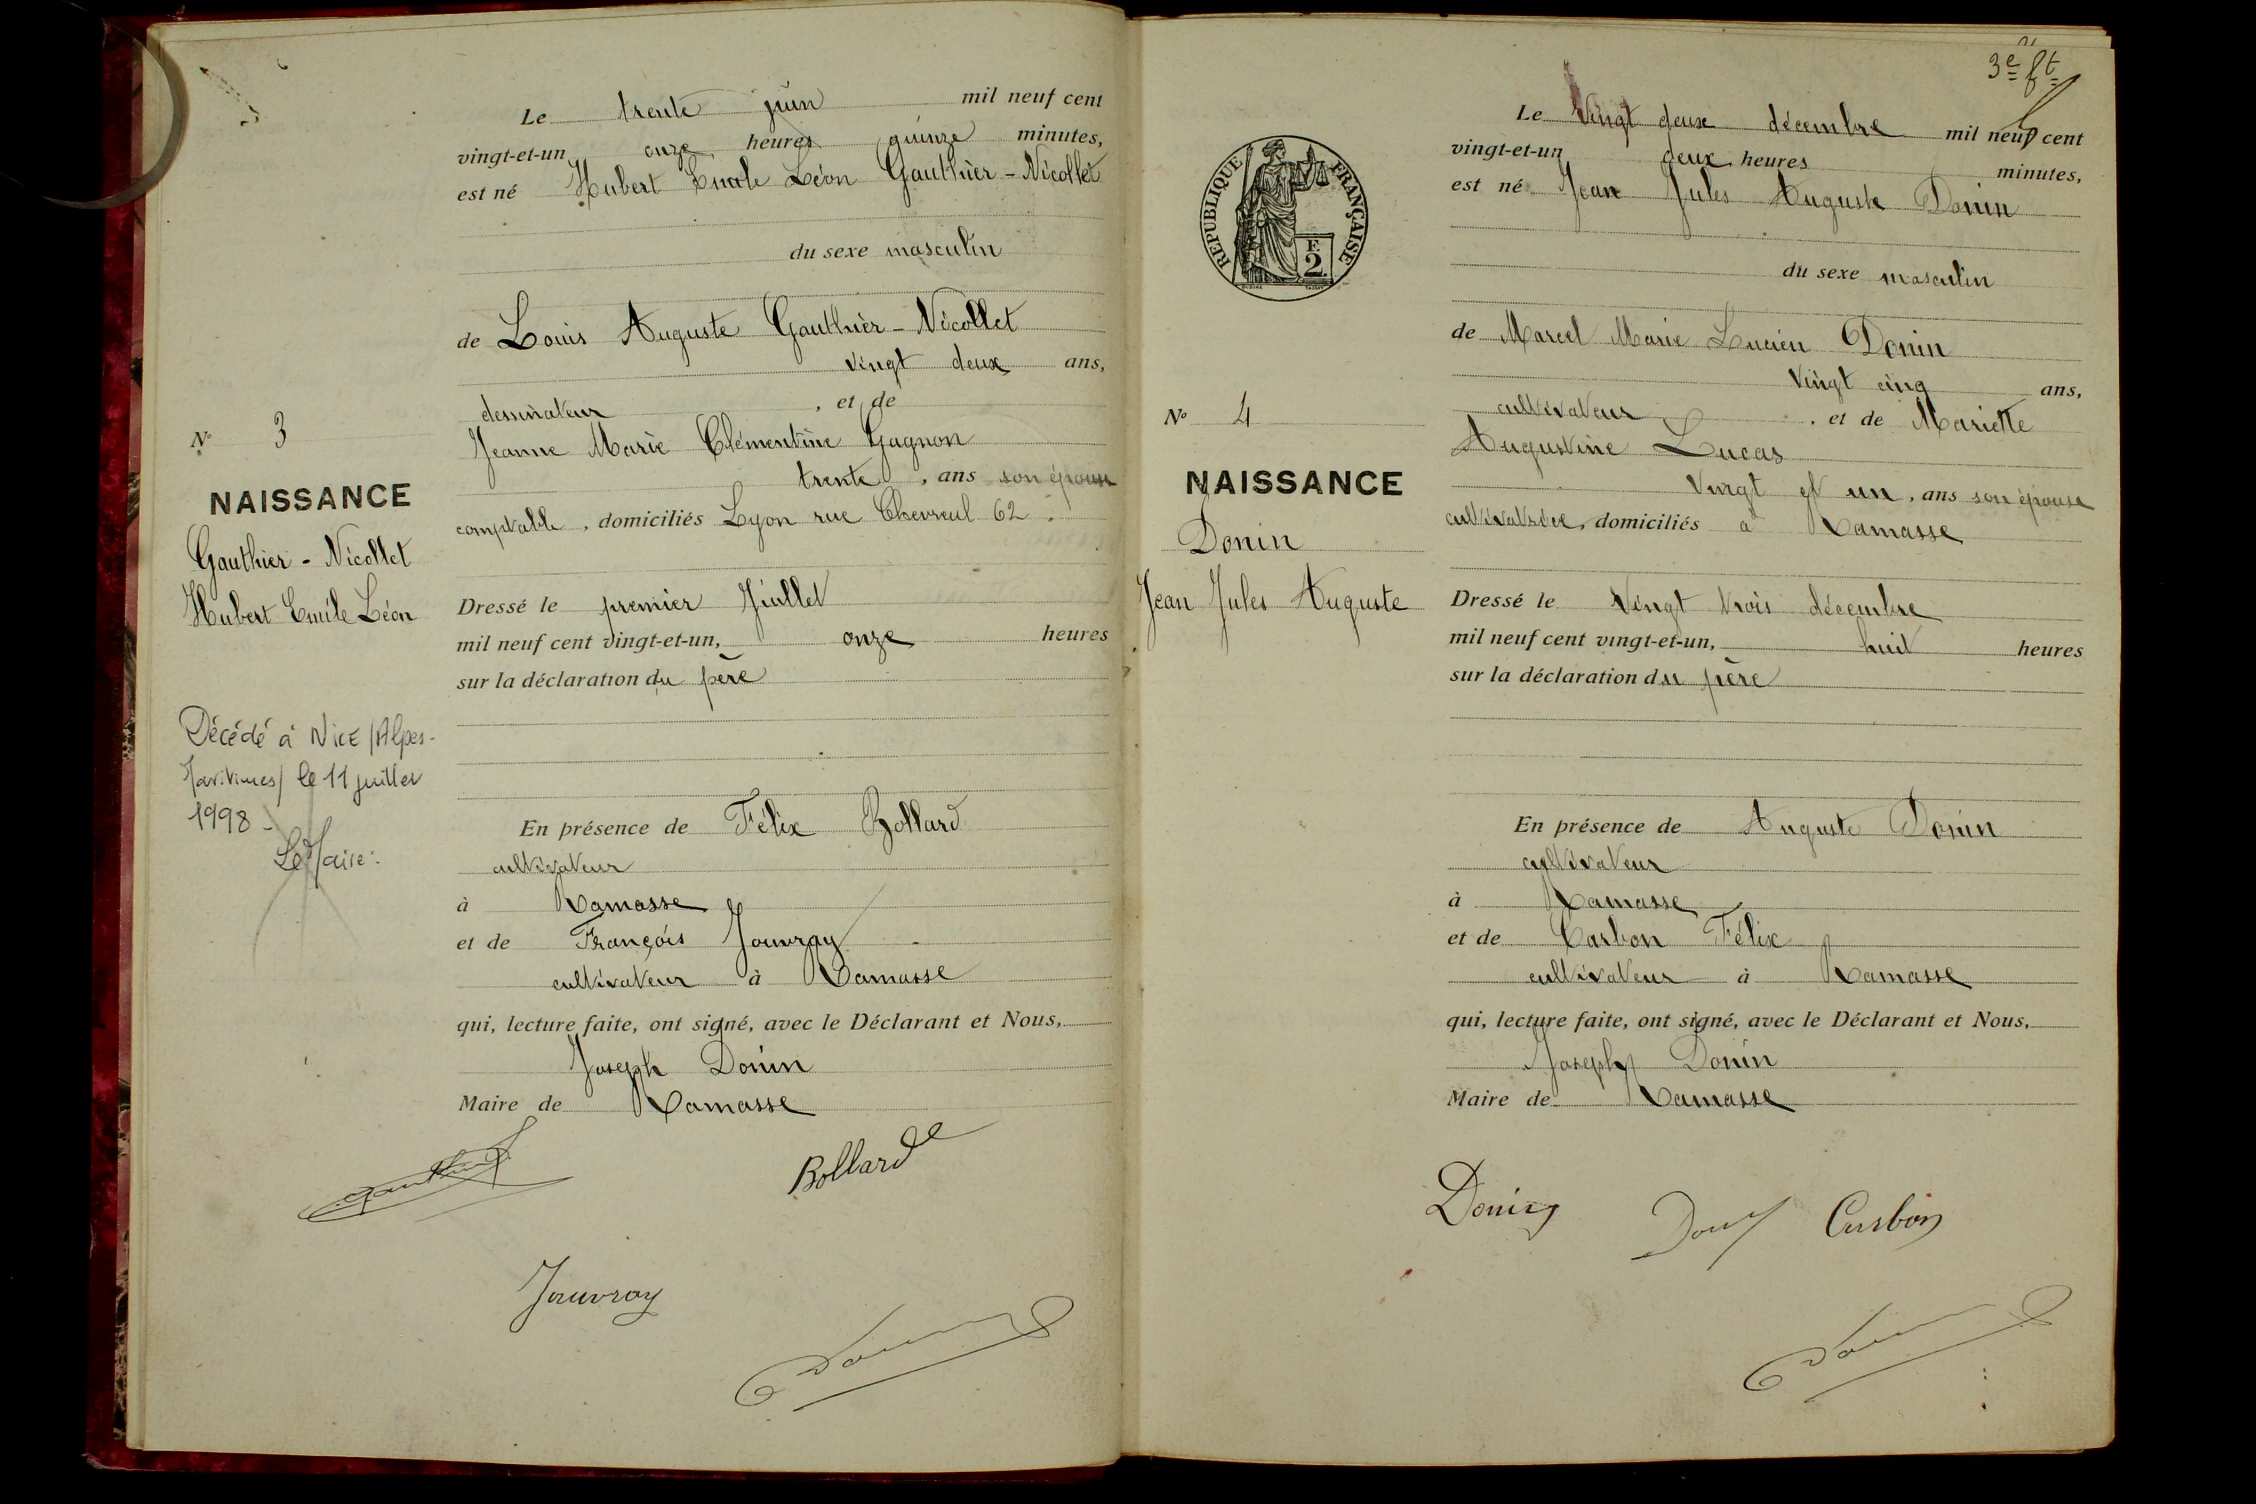 Le trente juin mil neuf cent
vingt-et-un onze heures quinze minutes,
est né Hubert Emile Léon Gauthier - Nicollet
du sexe masculin
de Louis Auguste Gauthier - Nicollet
vingt deux ans,
dessinateur , et de
Jeanne Marie Clémentine Gagnon
trente , ans son épouse
comptable , domiciliés Lyon rue Chevreul 62 .
Nº 3
NAISSANCE
Gauthier - Nicollet
Hubert Emile Léon
Dressé le premier Juillet
mil neuf cent vingt-et-un, onze heures
sur la déclaration du père
Décédé à NICE (Alpes-
Maritimes) le 11 juillet
1998 -
Le Maire :
En présence de Félix Bollard
cultivateur
à Ramasse
et de François Jouvray
cultivateur à Ramasse
qui, lecture faite, ont signé, avec le Déclarant et Nous,
Joseph Donin
Maire de Ramasse
Bollard
Jouvray
3e ft
REPUBLIQUE FRANÇAISE
F.
2
Le Vingt deux décembre mil neuf cent
vingt-et-un deux heures minutes,
est né Jean Jules Auguste Donin
du sexe masculin
de Marcel Marie Lucien Donin
vingt cinq ans,
cultivateur , et de Mariette
Augustine Lucas
vingt et un , ans son épouse
cultivatrice, domiciliés à Ramasse
Nº 4
NAISSANCE
Donin
Jean Jules Auguste
Dressé le Vingt trois décembre
mil neuf cent vingt-et-un, huit heures
sur la déclaration du père
En présence de Auguste Donin
cultivateur
à Ramasse
et de Carbon Félix
cultivateur à Ramasse
qui, lecture faite, ont signé, avec le Déclarant et Nous,
Joseph Donin
Maire de Ramasse
Donin